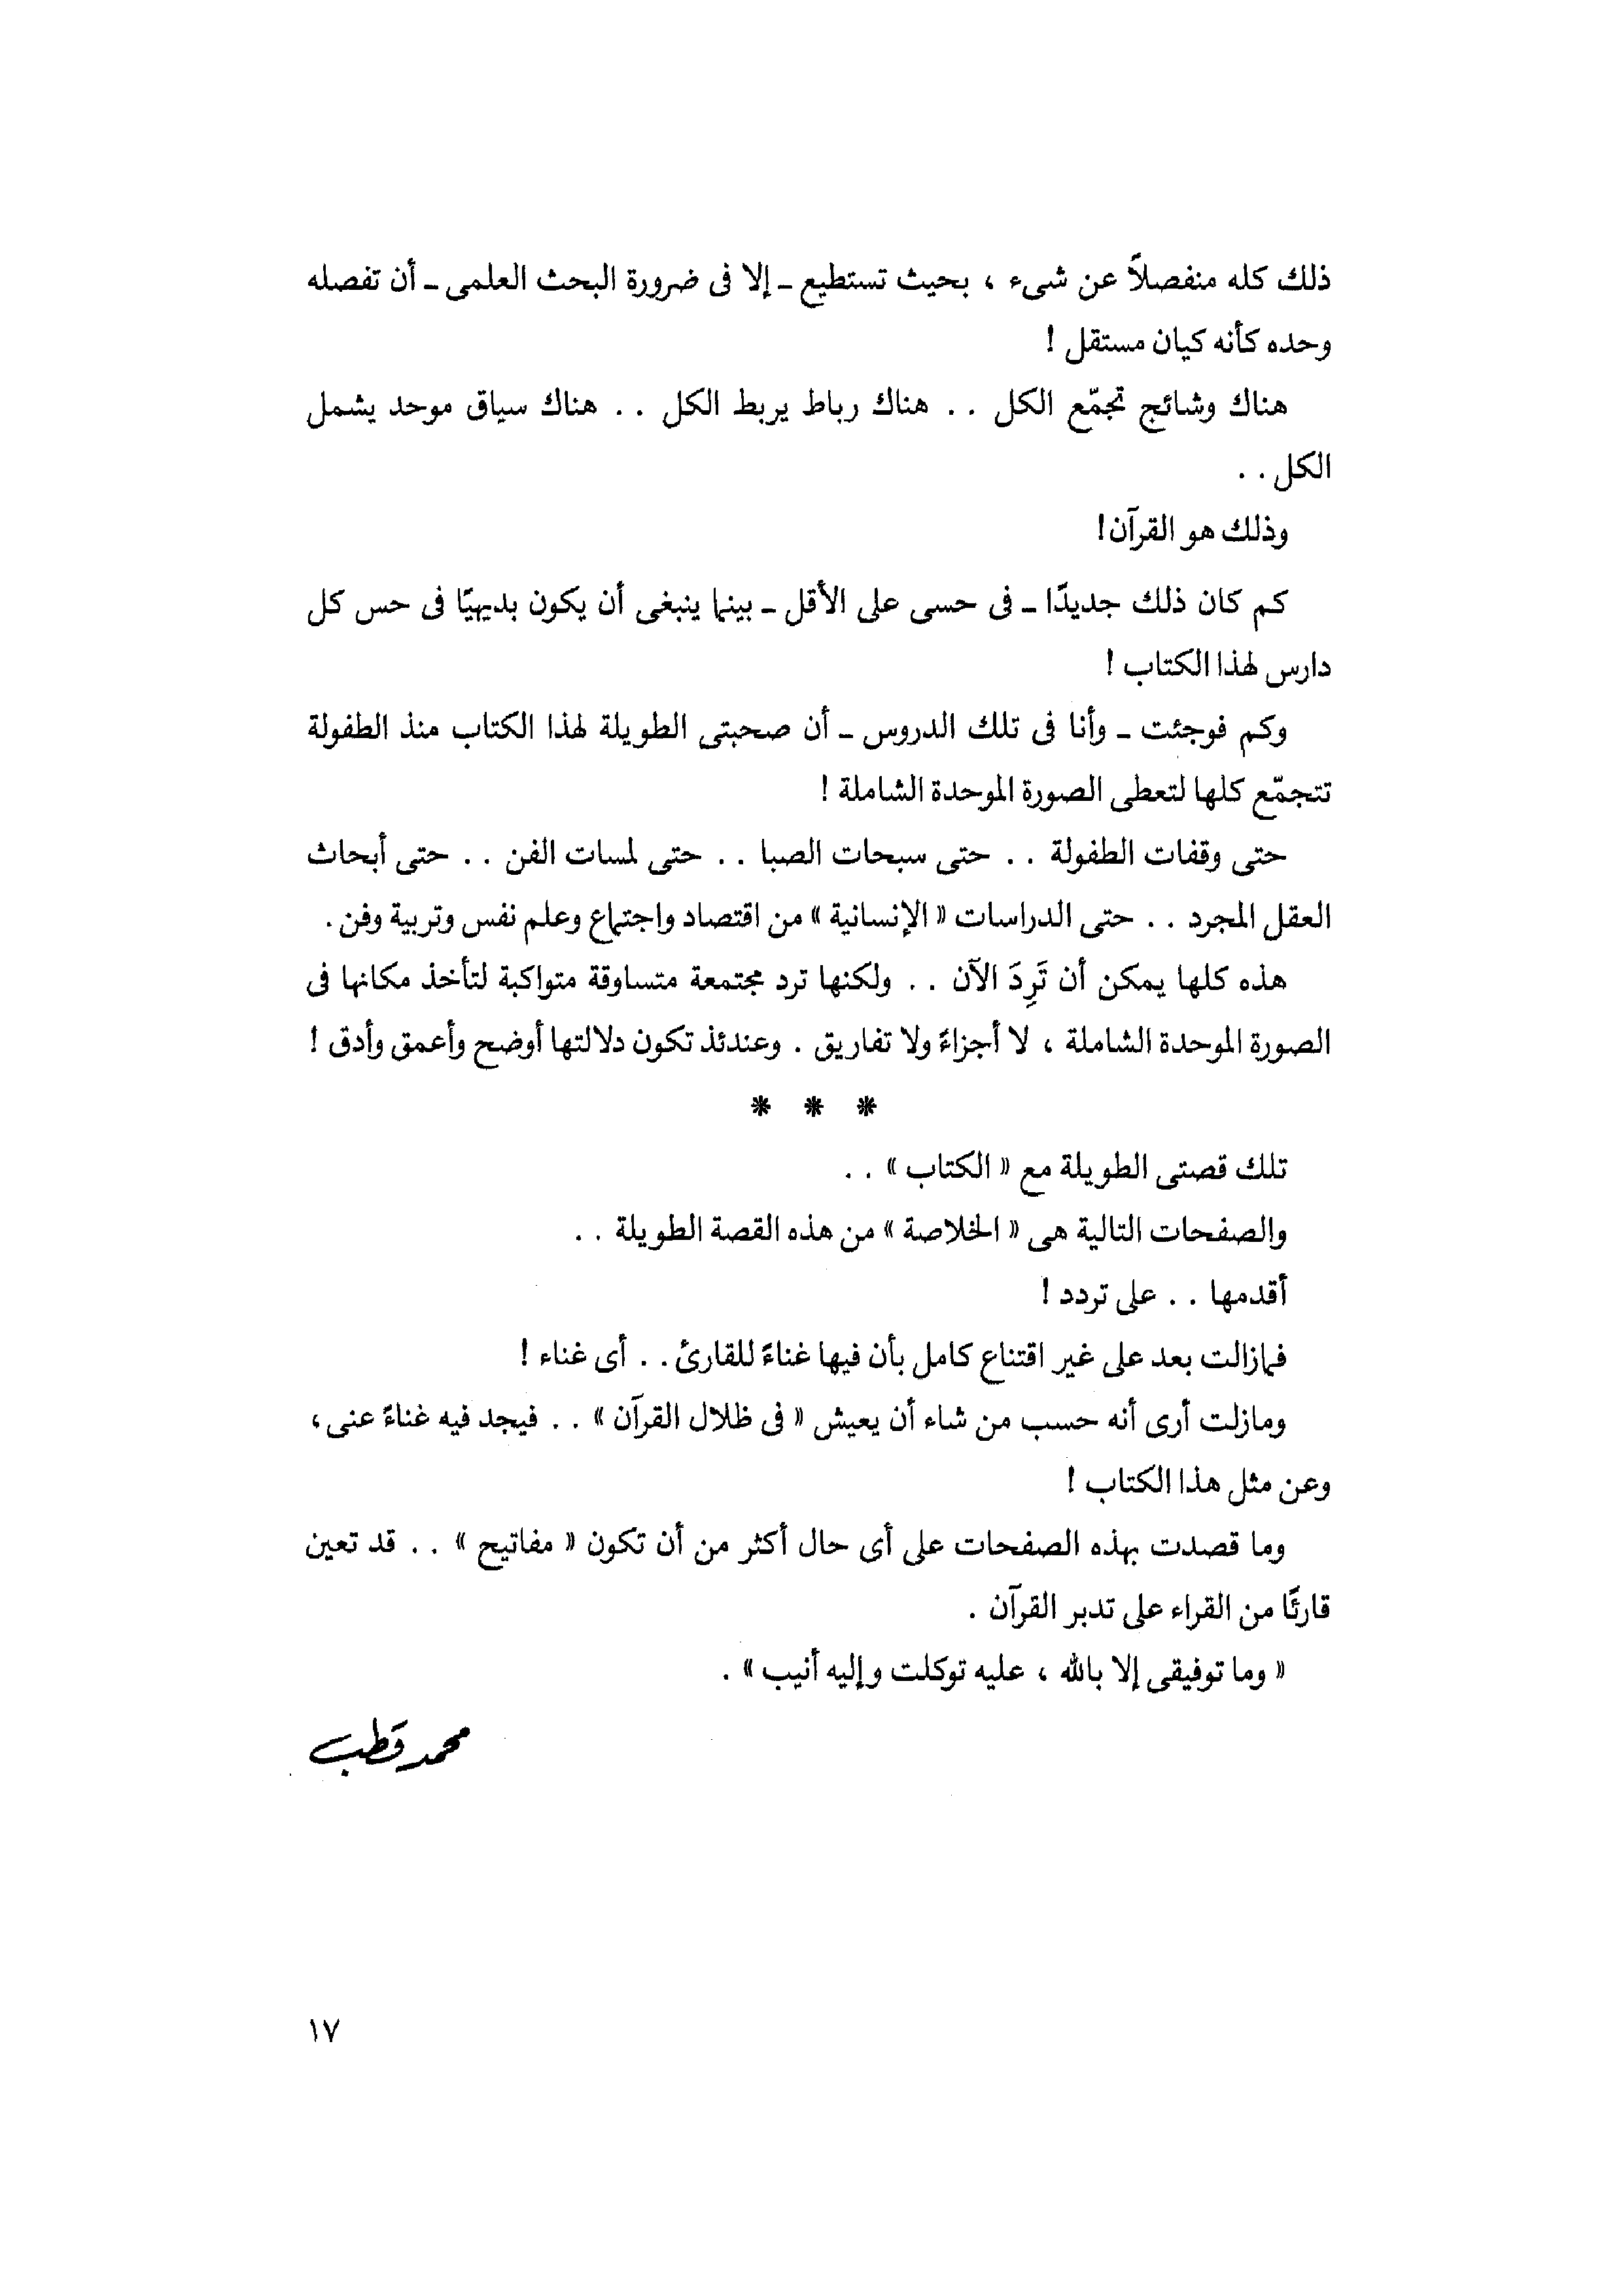 ذلك كله منفصلاً عن شىء ، بحيث تستطيع ـ إلا فى ضرورة البحث العلمى ـ أن تفصله
وحده كأنه كيان مستقل !
هناك وشائج تجمّع الكل . . هناك رباط يربط الكل . . هناك سياق موحد يشمل
الكل . .
وذلك هو القرآن!
كم كان ذلك جديدًا ـ فى حسى على الأقل ـ بينما ينبغى أن يكون بديهيًا فى حس كل
دارس لهذا الكتاب !
وكم فوجئت ـ وأنا فى تلك الدروس ـ أن صحبتى الطويلة لهذا الكتاب منذ الطفولة
تتجمّع كلها لتعطى الصورة الموحدة الشاملة !
حتى وقفات الطفولة . . حتى سبحات الصبا . . حتى لمسات الفن . . حتى أبحاث
العقل المجرد . . حتى الدراسات « الإنسانية » من اقتصاد واجتماع وعلم نفس وتربية وفن .
هذه كلها يمكن أن تَرِدَ الآن . . ولكنها ترد مجتمعة متساوقة متواكبة لتأخذ مكانها فى
الصورة الموحدة الشاملة ، لا أجزاءً ولا تفاريق . وعندئذ تكون دلالتها أوضح وأعمق وأدق !
* * *
تلك قصتى الطويلة مع « الكتاب » . .
والصفحات التالية هى « الخلاصة » من هذه القصة الطويلة . .
أقدمها . . على تردد !
فمازالت بعد على غير اقتناع كامل بأن فيها غناءً للقارئ . . أى غناء !
ومازلت أرى أنه حسب من شاء أن يعيش « فى ظلال القرآن » . . فيجد فيه غناءً عنى ،
وعن مثل هذا الكتاب !
وما قصدت بهذه الصفحات على أى حال أكثر من أن تكون « مفاتيح » . . قد تعين
قارئًا من القراء على تدبر القرآن .
« وما توفيقى إلا بالله ، عليه توكلت وإليه أنيب » .
محمد قطب
١٧